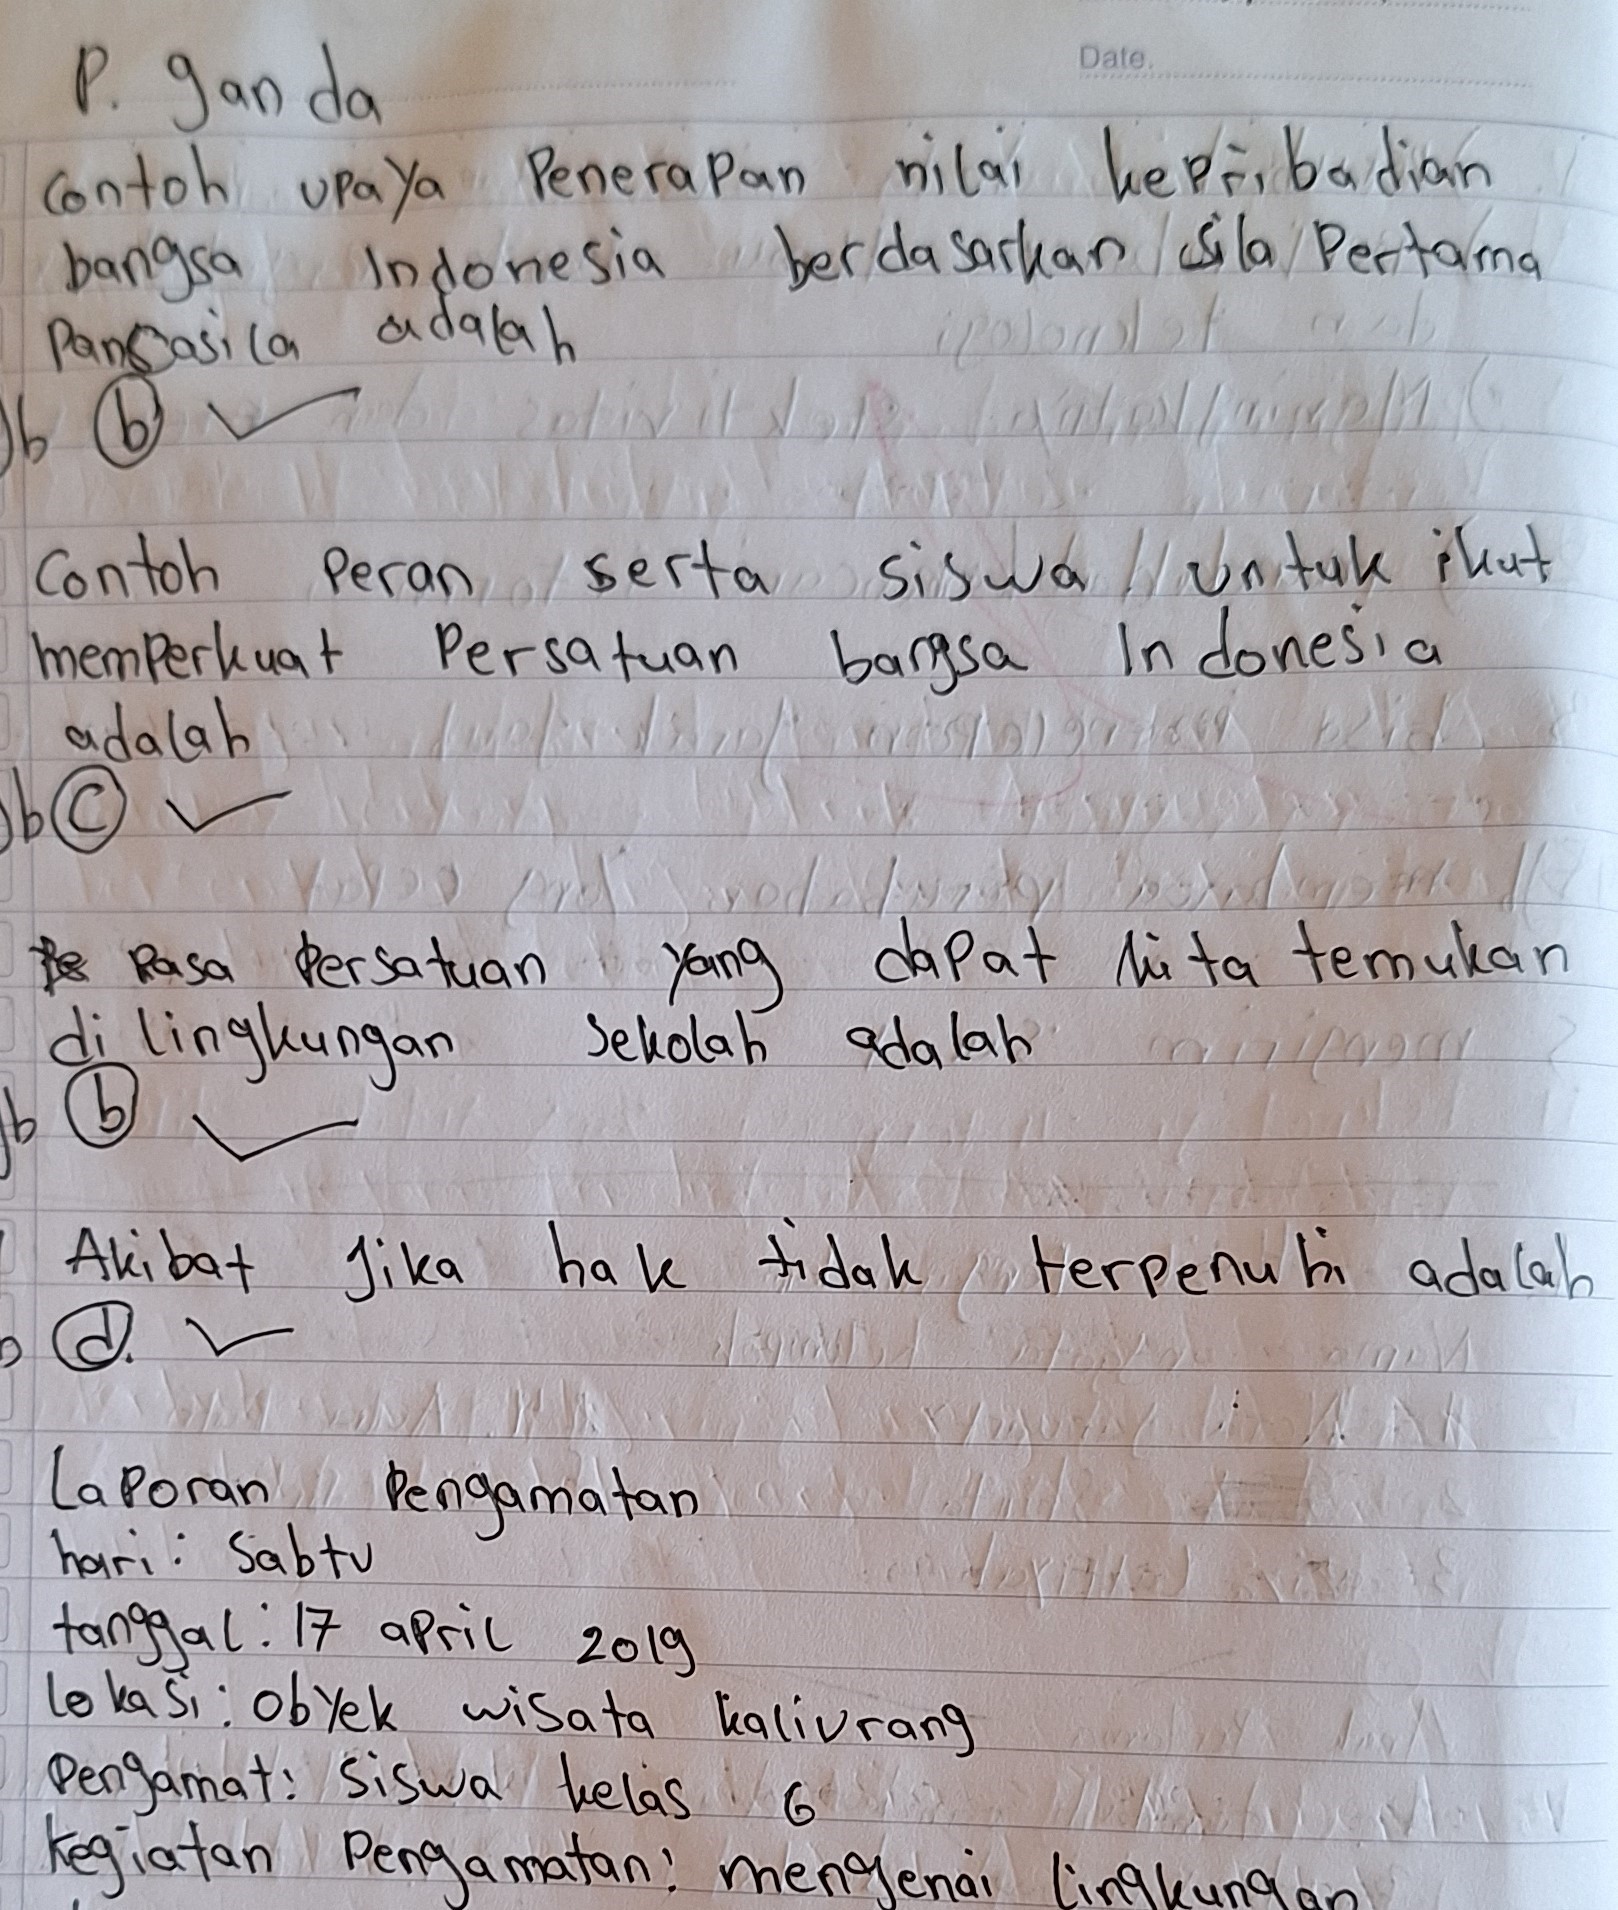 Date.
P. ganda
Contoh upaya Penerapan nilai kepribadian
bangsa Indonesia berdasarkan sila Pertama
Pancasila adalah
Jb b
Contoh Peran serta siswa untuk ikut
memperkuat Persatuan bangsa Indonesia
adalah
Jb C
Rasa Persatuan yang dapat kita temukan
di lingkungan sekolah adalah
Jb b
Akibat jika hak tidak terpenuhi adalah
b d.
Laporan Pengamatan
hari: Sabtu
tanggal: 17 april 2019
lokasi: Obyek wisata kaliurang
Pengamat: Siswa kelas 6
Kegiatan Pengamatan: mengenai lingkungan